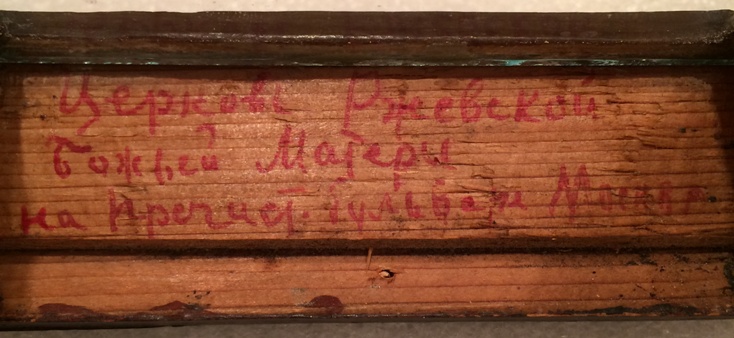 Церковь Ржевской
Божьей Матери
на Пречист. бульваре Москва